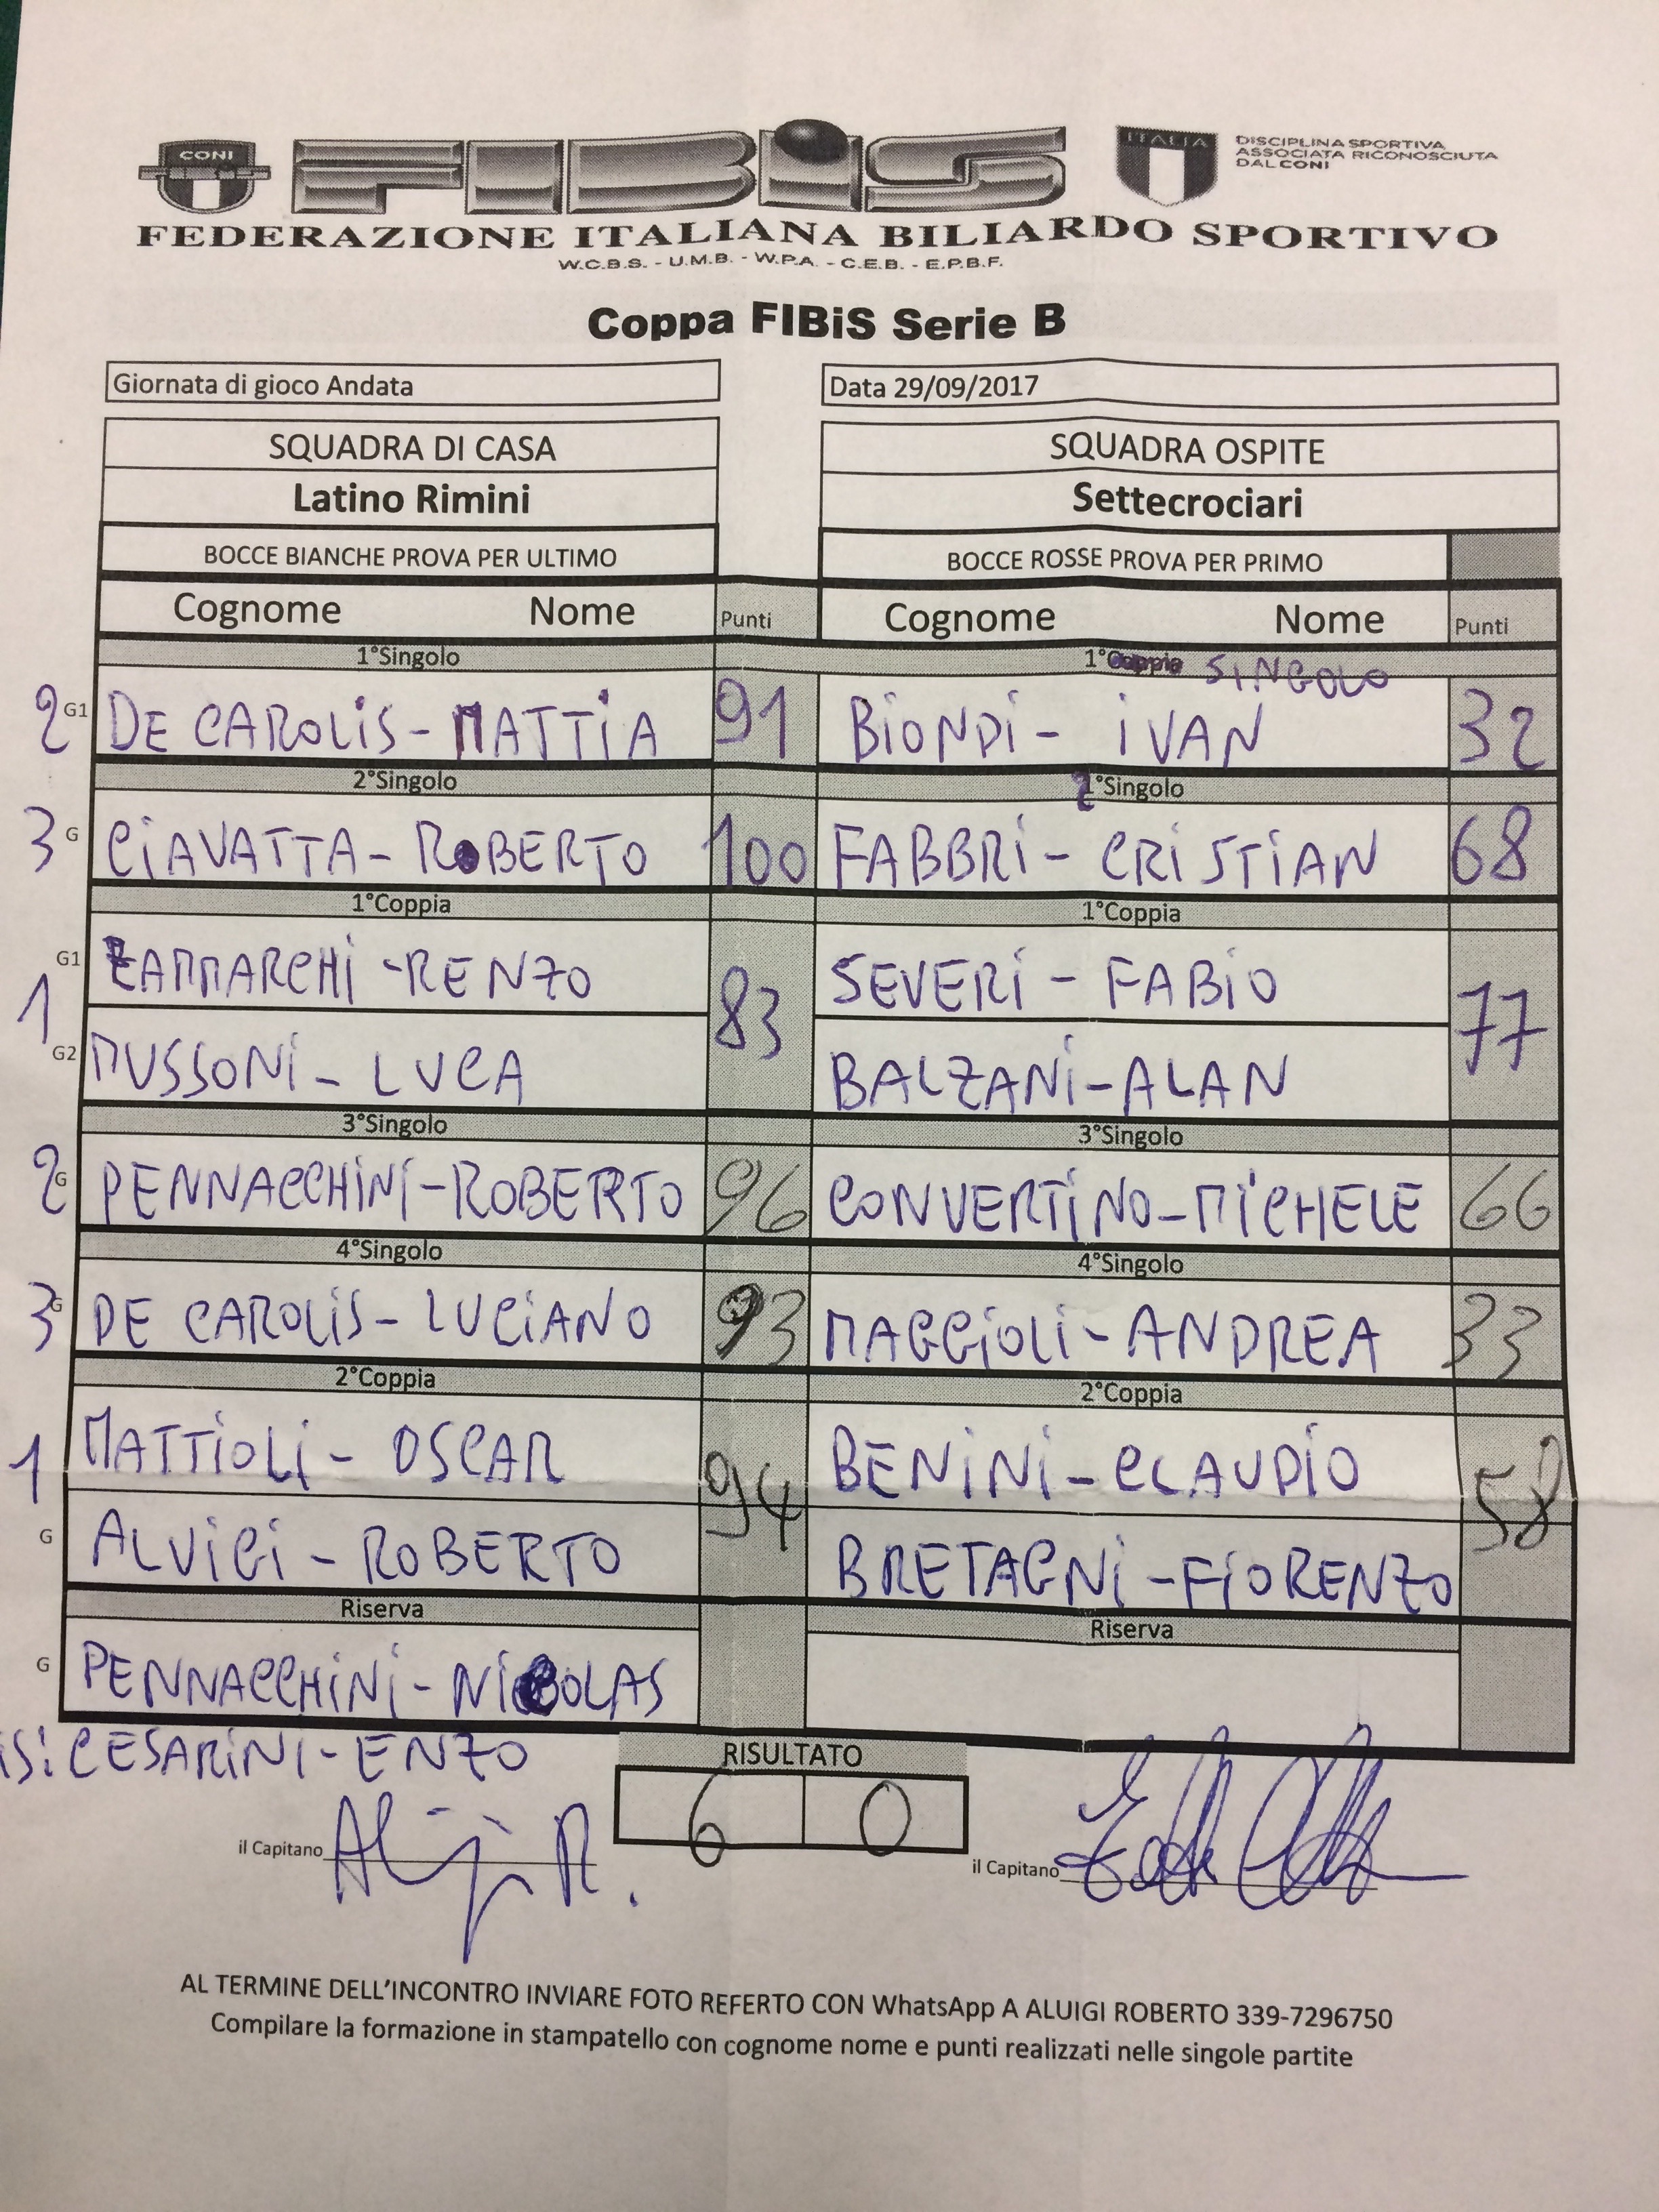 CONI FIBiS ITALIA DISCIPLINA SPORTIVA
ASSOCIATA RICONOSCIUTA
DAL CONI
FEDERAZIONE ITALIANA BILIARDO SPORTIVO
W.C.B.S. - U.M.B. - W.P.A. - C.E.B. - E.P.B.F.
Coppa FIBiS Serie B
Giornata di gioco Andata Data 29/09/2017
SQUADRA DI CASA SQUADRA OSPITE
Latino Rimini Settecrociari
BOCCE BIANCHE PROVA PER ULTIMO BOCCE ROSSE PROVA PER PRIMO
Cognome Nome Punti Cognome Nome Punti
1°Singolo 1°Coppia SINGOLO
2 G1 DE CAROLIS - MATTIA 91 BIONDI - IVAN 32
2°Singolo 2°Singolo
3 G CIAVATTA - ROBERTO 100 FABBRI - CRISTIAN 68
1°Coppia 1°Coppia
G1 ZAMMARCHI - RENZO SEVERI - FABIO
1 83 77
G2 MUSSONI - LUCA BALZANI - ALAN
3°Singolo 3°Singolo
2 G PENNACCHINI - ROBERTO 96 CONVERTINO - MICHELE 66
4°Singolo 4°Singolo
3 G DE CAROLIS - LUCIANO 93 MAGGIOLI - ANDREA 33
2°Coppia 2°Coppia
MATTIOLI - OSCAR BENINI - CLAUDIO
1 94 58
G ALUIGI - ROBERTO BRETAGNI - FIORENZO
Riserva Riserva
G PENNACCHINI - NICOLAS
IS: CESARINI - ENZO
RISULTATO
6 0
il Capitano il Capitano
AL TERMINE DELL'INCONTRO INVIARE FOTO REFERTO CON WhatsApp A ALUIGI ROBERTO 339-7296750
Compilare la formazione in stampatello con cognome nome e punti realizzati nelle singole partite